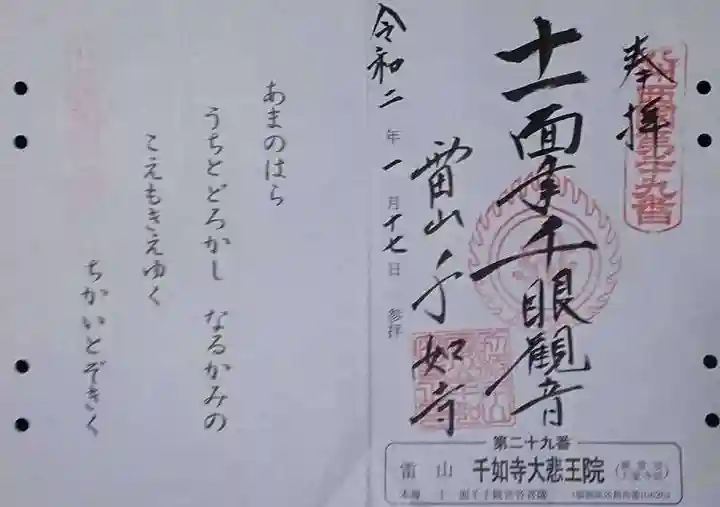 奉拝
十一面千手千眼観音
雷山千如寺
令和二年一月十七日 参拝
第二十九番
雷山 千如寺大悲王院
あまのはら
うちとどろかし なるかみの
こえもきえゆく
ちかいとぞきく